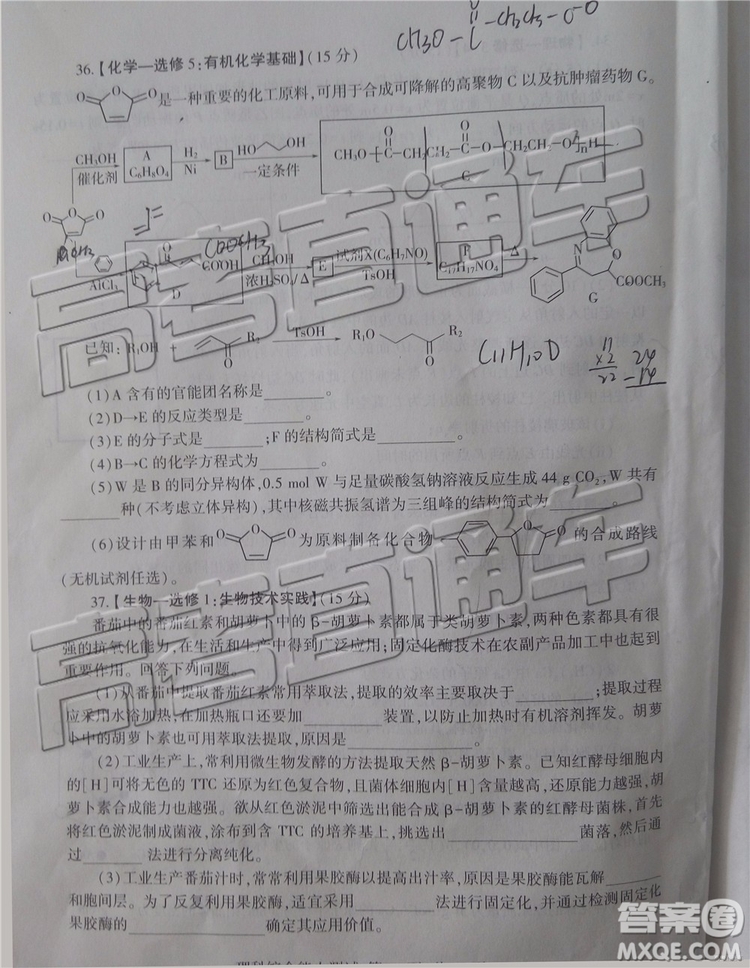 CH3O-C-CH2CH2-C-O
O
36.【化学—选修5:有机化学基础】(15分)
是一种重要的化工原料,可用于合成可降解的高聚物C以及抗肿瘤药物G。
CH3OH 催化剂 A C6H8O4 H2 Ni B HO OH 一定条件 CH3O C CH2CH2 C O CH2CH2 O n H
C
AlCl3 D COOH COOCH3 CH3OH 浓H2SO4/Δ E 试剂X(C6H7NO) TsOH F C17H17NO4 Δ N O COOCH3 G
已知:R1OH + R2 O TsOH R1O R2 O
C11H10O
11 ×2 22 24 -14
(1)A含有的官能团名称是________。
(2)D→E的反应类型是________。
(3)E的分子式是________;F的结构简式是________。
(4)B→C的化学方程式为________。
(5)W是B的同分异构体,0.5 mol W与足量碳酸氢钠溶液反应生成44 g CO2,W共有
________种(不考虑立体异构),其中核磁共振氢谱为三组峰的结构简式为________。
(6)设计由甲苯和 为原料制备化合物 的合成路线
(无机试剂任选)。
37.【生物—选修1:生物技术实践】(15分)
番茄中的番茄红素和胡萝卜中的β-胡萝卜素都属于类胡萝卜素,两种色素都具有很
强的抗氧化能力,在生活和生产中得到广泛应用;固定化酶技术在农副产品加工中也起到
重要作用。回答下列问题。
(1)从番茄中提取番茄红素常用萃取法,提取的效率主要取决于________;提取过程
应采用水浴加热,在加热瓶口还要加________装置,以防止加热时有机溶剂挥发。胡萝
卜中的胡萝卜素也可用萃取法提取,原因是________。
(2)工业生产上,常利用微生物发酵的方法提取天然β-胡萝卜素。已知红酵母细胞内
的[H]可将无色的TTC还原为红色复合物,且菌体细胞内[H]含量越高,还原能力越强,胡
萝卜素合成能力也越强。欲从红色淤泥中筛选出能合成β-胡萝卜素的红酵母菌株,首先
将红色淤泥制成菌液,涂布到含TTC的培养基上,挑选出________菌落,然后通
过________法进行分离纯化。
(3)工业生产番茄汁时,常常利用果胶酶以提高出汁率,原因是果胶酶能瓦解________
和胞间层。为了反复利用果胶酶,适宜采用________法进行固定化,并通过检测固定化
果胶酶的________确定其应用价值。
高考直通车
高考直通车
高考直通车
答案圈
MXQE.COM